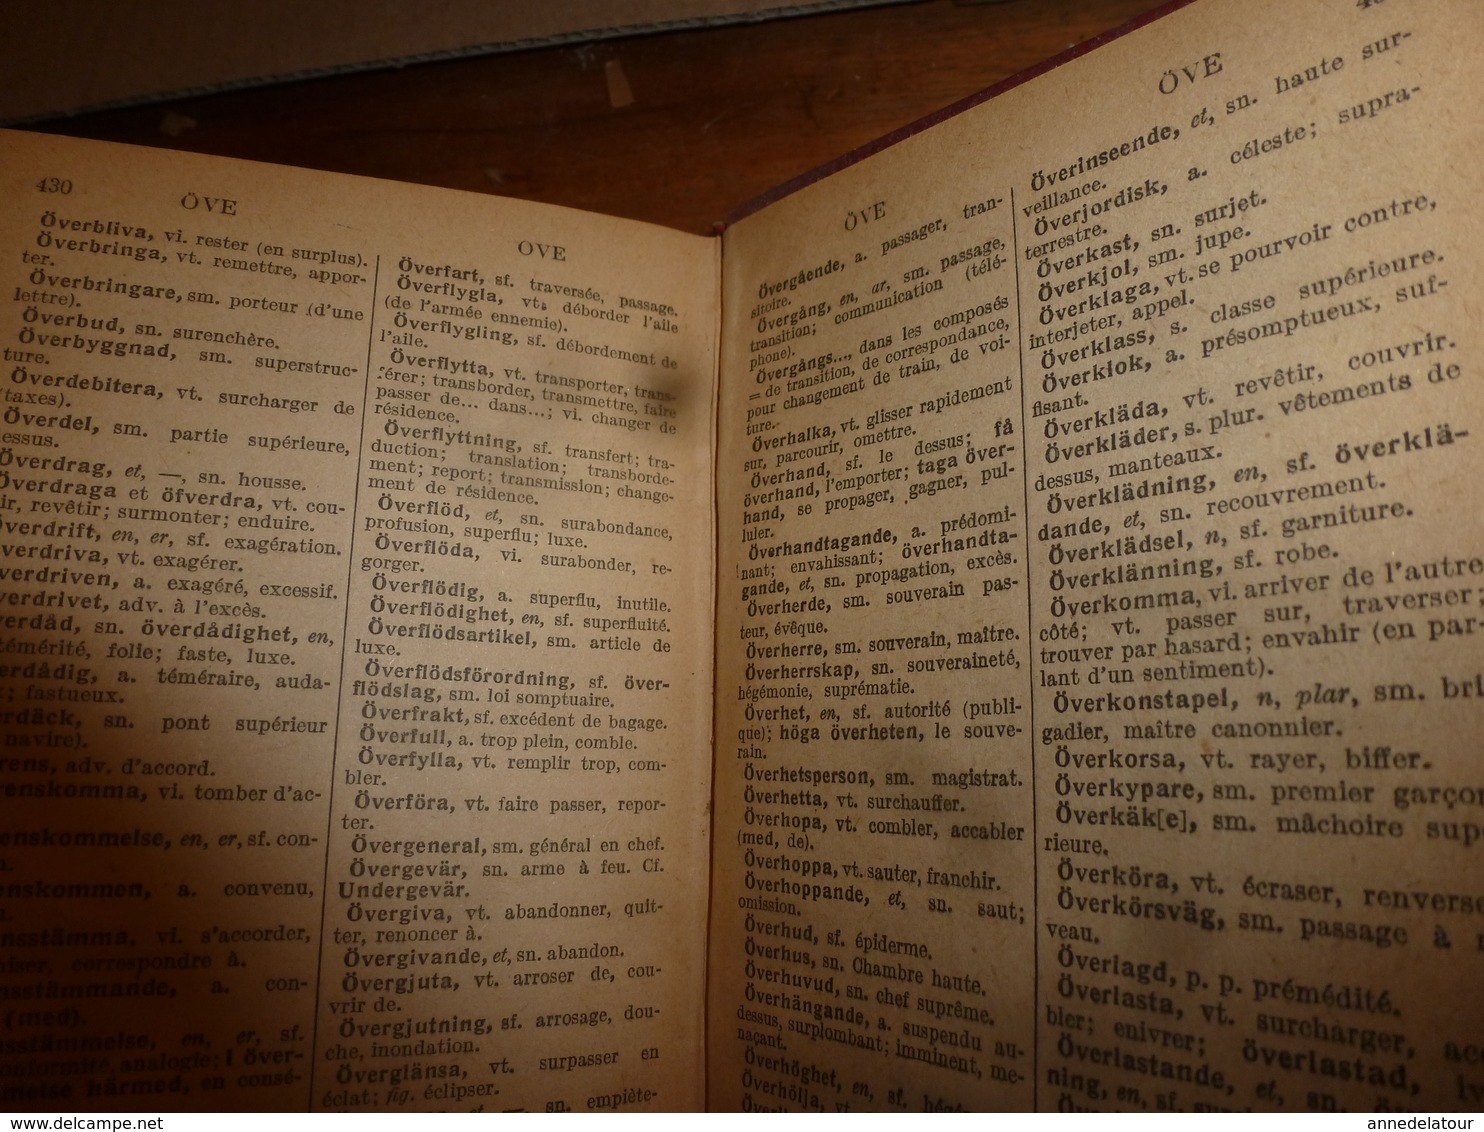 430
ÖVE
Överbliva, vi. rester (en surplus).
Överbringa, vt. remettre, appor-
ter.
Överbringare, sm. porteur (d'une
lettre).
Överbud, sn. surenchère.
Överbyggnad, sm. superstruc-
ture.
Överdebitera, vt. surcharger de
(taxes).
Överdel, sm. partie supérieure,
dessus.
Överdrag, et, —, sn. housse.
Överdraga et öfverdra, vt. cou-
revêtir; surmonter; enduire.
överdrift, en, er, sf. exagération.
verdriva, vt. exagérer.
verdriven, a. exagéré, excessif.
verdrivet, adv. à l'excès.
verdåd, sn. överdådighet, en,
témérité, folie; faste, luxe.
erdådig, a. téméraire, auda-
fastueux.
erdäck, sn. pont supérieur
navire).
rens, adv. d'accord.
renskomma, vi. tomber d'ac-
enskommelse, en, er, sf. con-
enskommen, a. convenu,
nsstämma, vi. s'accorder,
iser, correspondre à.
nsstämmande, a. con-
(med).
sstämmelse, en, er, sf.
conformité, analogie; i över-
melse härmed, en consé-
OVE
Överfart, sf. traversée, passage.
Överflygla, vt. déborder l'aile
(de l'armée ennemie).
Överflygling, sf. débordement de
l'aile.
Överflytta, vt. transporter, trans-
férer; transborder, transmettre, faire
passer de... dans...; vi. changer de
résidence.
Överflyttning, sf. transfert; tra-
duction; translation; transborde-
ment; report; transmission; change-
ment de résidence.
Överflöd, et, sn. surabondance,
profusion, superflu; luxe.
Överflöda, vi. surabonder, re-
gorger.
Överflödig, a. superflu, inutile.
Överflödighet, en, sf. superfluité.
Överflödsartikel, sm. article de
luxe.
Överflödsförordning, sf. över-
flödslag, sm. loi somptuaire.
Överfrakt, sf. excédent de bagage.
Överfull, a. trop plein, comble.
Överfylla, vt. remplir trop, com-
bler.
Överföra, vt. faire passer, repor-
ter.
Övergeneral, sm. général en chef.
Övergevär, sn. arme à feu. Cf.
Undergevär.
Övergiva, vt. abandonner, quit-
ter, renoncer à.
Övergivande, et, sn. abandon.
Övergjuta, vt. arroser de, cou-
vrir de.
Övergjutning, sf. arrosage, dou-
che, inondation.
Överglänsa, vt. surpasser en
éclat; fig. éclipser.
et, —, sn. empiète-
ÖVE
Övergående, a. passager, tran-
sitoire.
Övergång, en, ar, sm. passage,
transition; communication (télé-
phone).
Övergångs..., dans les composés
= de transition, de correspondance,
pour changement de train, de voi-
ture.
Överhalka, vt. glisser rapidement
sur, parcourir, omettre.
Överhand, sf. le dessus; få
överhand, l'emporter; taga över-
hand, se propager, gagner, pul-
luler.
Överhandtagande, a. prédomi-
nant; envahissant; överhandta-
gande, et, sn. propagation, excès.
Överherde, sm. souverain pas-
teur, évêque.
Överherre, sm. souverain, maître.
Överherrskap, sn. souveraineté,
hégémonie, suprématie.
Överhet, en, sf. autorité (publi-
que); höga överheten, le souve-
rain.
Överhetsperson, sm. magistrat.
Överhetta, vt. surchauffer.
Överhopa, vt. combler, accabler
(med, de).
Överhoppa, vt. sauter, franchir.
Överhoppande, et, sn. saut;
omission.
Överhud, sf. épiderme.
Överhus, sn. Chambre haute.
Överhuvud, sn. chef suprême.
Överhängande, a. suspendu au-
dessus, surplombant; imminent, me-
naçant.
Överhöghet, en, sf.
Överhölja, vt.
ÖVE
Överinseende, et, sn. haute sur-
veillance.
Överjordisk, a. céleste; supra-
terrestre.
Överkast, sn. surjet.
Överkjol, sm. jupe.
Överklaga, vt. se pourvoir contre,
interjeter, appel.
Överklass, s. classe supérieure.
Överklok, a. présomptueux, suf-
fisant.
Överkläda, vt. revêtir, couvrir.
Överkläder, s. plur. vêtements de
dessus, manteaux.
Överklädning, en, sf. överklä-
dande, et, sn. recouvrement.
Överklädsel, n, sf. garniture.
Överklänning, sf. robe.
Överkomma, vi. arriver de l'autre
côté; vt. passer sur, traverser;
trouver par hasard; envahir (en par-
lant d'un sentiment).
Överkonstapel, n, plar, sm. bri-
gadier, maître canonnier.
Överkorsa, vt. rayer, biffer.
Överkypare, sm. premier garçon
Överkäk[e], sm. mâchoire supé-
rieure.
Överköra, vt. écraser, renverse
Överkörsväg, sm. passage à
veau.
Överlagd, p. p. prémédité.
Överlasta, vt. surcharger, acc
bler; enivrer; överlastad,
Överlastande, et, sn.
ning, en, sf.
annedelatour